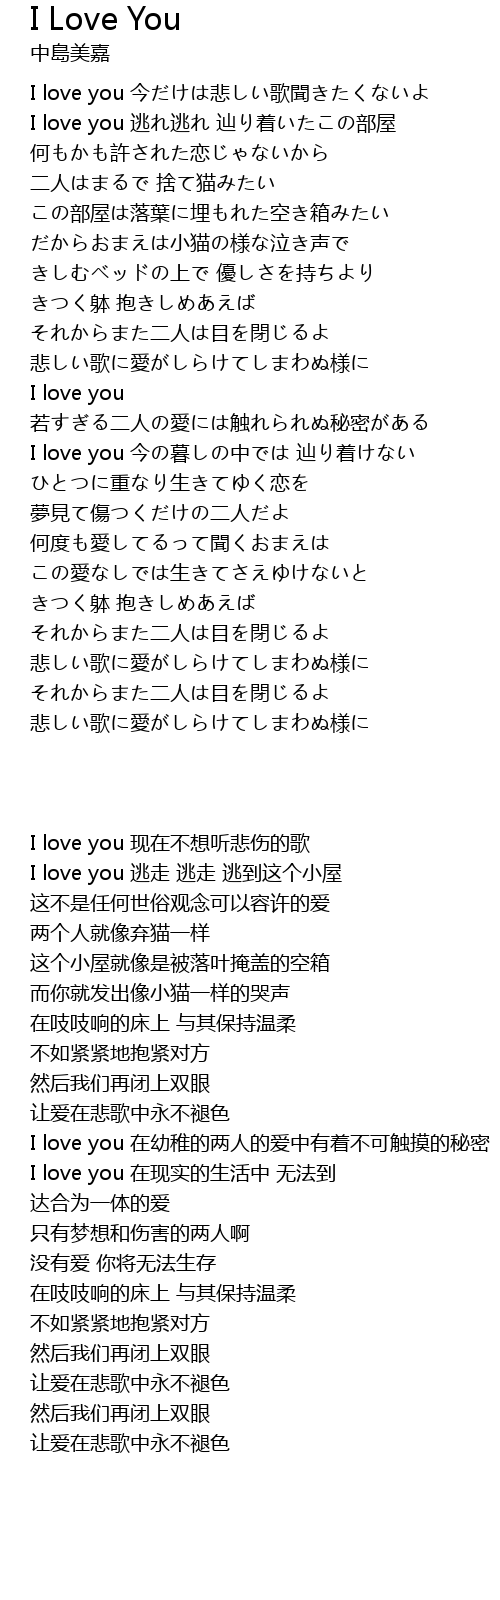 I Love You
中島美嘉
I love you 今だけは悲しい歌聞きたくないよ
I love you 逃れ逃れ 辿り着いたこの部屋
何もかも許された恋じゃないから
二人はまるで 捨て猫みたい
この部屋は落葉に埋もれた空き箱みたい
だからおまえは小猫の様な泣き声で
きしむベッドの上で 優しさを持ちより
きつく躰 抱きしめあえば
それからまた二人は目を閉じるよ
悲しい歌に愛がしらけてしまわぬ様に
I love you
若すぎる二人の愛には触れられぬ秘密がある
I love you 今の暮しの中では 辿り着けない
ひとつに重なり生きてゆく恋を
夢見て傷つくだけの二人だよ
何度も愛してるって聞くおまえは
この愛なしでは生きてさえゆけないと
きつく躰 抱きしめあえば
それからまた二人は目を閉じるよ
悲しい歌に愛がしらけてしまわぬ様に
それからまた二人は目を閉じるよ
悲しい歌に愛がしらけてしまわぬ様に
I love you 现在不想听悲伤的歌
I love you 逃走 逃走 逃到这个小屋
这不是任何世俗观念可以容许的爱
两个人就像弃猫一样
这个小屋就像是被落叶掩盖的空箱
而你就发出像小猫一样的哭声
在吱吱响的床上 与其保持温柔
不如紧紧地抱紧对方
然后我们再闭上双眼
让爱在悲歌中永不褪色
I love you 在幼稚的两人的爱中有着不可触摸的秘密
I love you 在现实的生活中 无法到
达合为一体的爱
只有梦想和伤害的两人啊
没有爱 你将无法生存
在吱吱响的床上 与其保持温柔
不如紧紧地抱紧对方
然后我们再闭上双眼
让爱在悲歌中永不褪色
然后我们再闭上双眼
让爱在悲歌中永不褪色